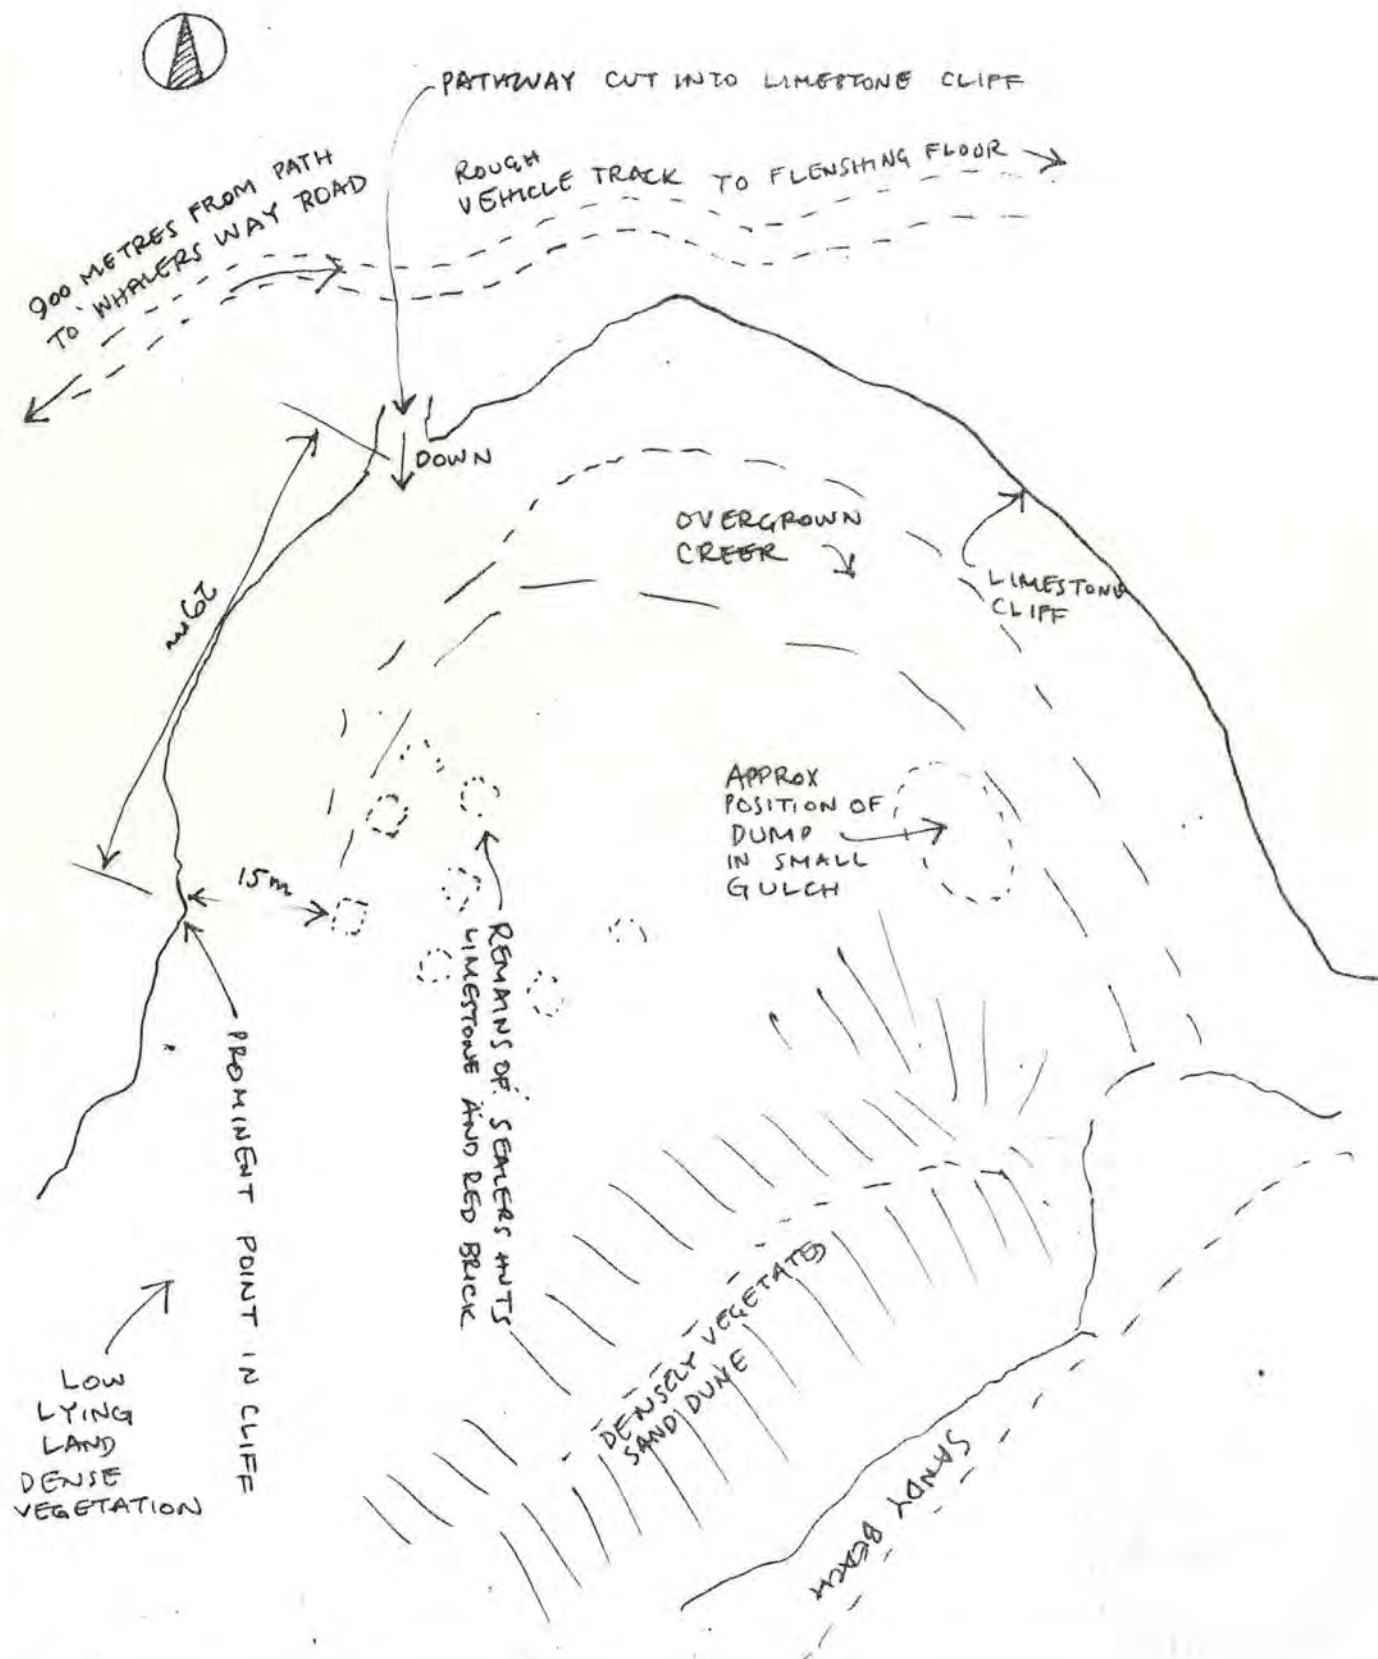 PATHWAY CUT INTO LIMESTONE CLIFF
ROUGH
VEHICLE TRACK TO FLENSHING FLOOR
900 METRES FROM PATH
TO WHALERS WAY ROAD
DOWN
OVERGROWN
CREEK
LIMESTONE
CLIFF
29m
APPROX
POSITION OF
DUMP
IN SMALL
GULCH
15m
REMAINS OF SEALERS HUTS
LIMESTONE AND RED BRICK
PROMINENT POINT IN CLIFF
LOW
LYING
LAND
DENSE
VEGETATION
DENSELY VEGETATED
SAND DUNE
SANDY BEACH